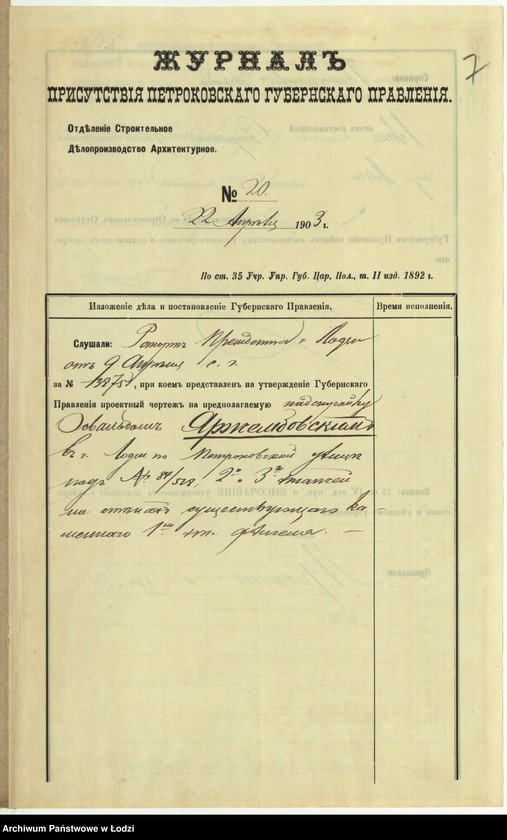 7
ЖУРНАЛЪ
ПРИСУТСТВІЯ ПЕТРОКОВСКАГО ГУБЕРНСКАГО ПРАВЛЕНІЯ.
Отдѣленіе Строительное
Дѣлопроизводство Архитектурное.
№ 20.
22 Апрѣля 1903 г.
По ст. 35 Учр. Упр. Губ. Цар. Пол., т. II изд. 1892 г.
Изложеніе дѣла и постановленіе Губернскаго Правленія.
Время исполненія.
Слушали: Рапортъ Президента г. Лодзи
отъ 9 Апрѣля с. г.
за № 13875, при коемъ представленъ на утвержденіе Губернскаго
Правленія проектный чертежъ на предполагаемую надстройку
въ г. Лодзи по Петроковской улицѣ
подъ № 2го и 3го этажей
на стѣнахъ существующаго ка-
меннаго 1го эт. флигеля. —
Archiwum Państwowe w Łodzi